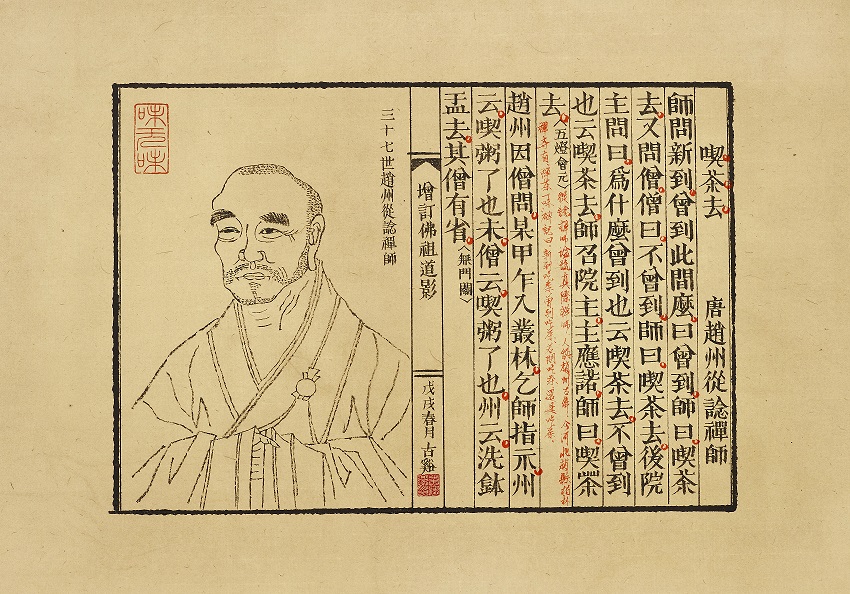 喫茶去 唐趙州從諗禪師
師問新到曾到此間麼曰曾到師曰喫茶
去又問僧僧曰不曾到師曰喫茶去後院
主問曰爲什麼曾到也云喫茶去不曾到
也云喫茶去師召院主主應諾師曰喫茶
去〈五燈會元〉
趙州因僧問某甲乍入叢林乞師指示州
云喫粥了也未僧云喫粥了也州云洗鉢
盂去其僧有省〈無門關〉
增訂佛祖道影 戊戌春月 古谿
三十七世趙州從諗禪師
味无味